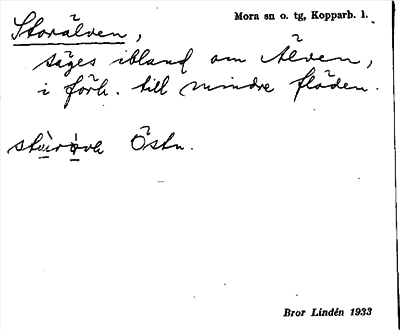 Storälven,
Mora sn o. tg, Kopparb. l.
säges ibland om Älven,
i förh. till mindre flöden.
Östn.
Bror Lindén 1933